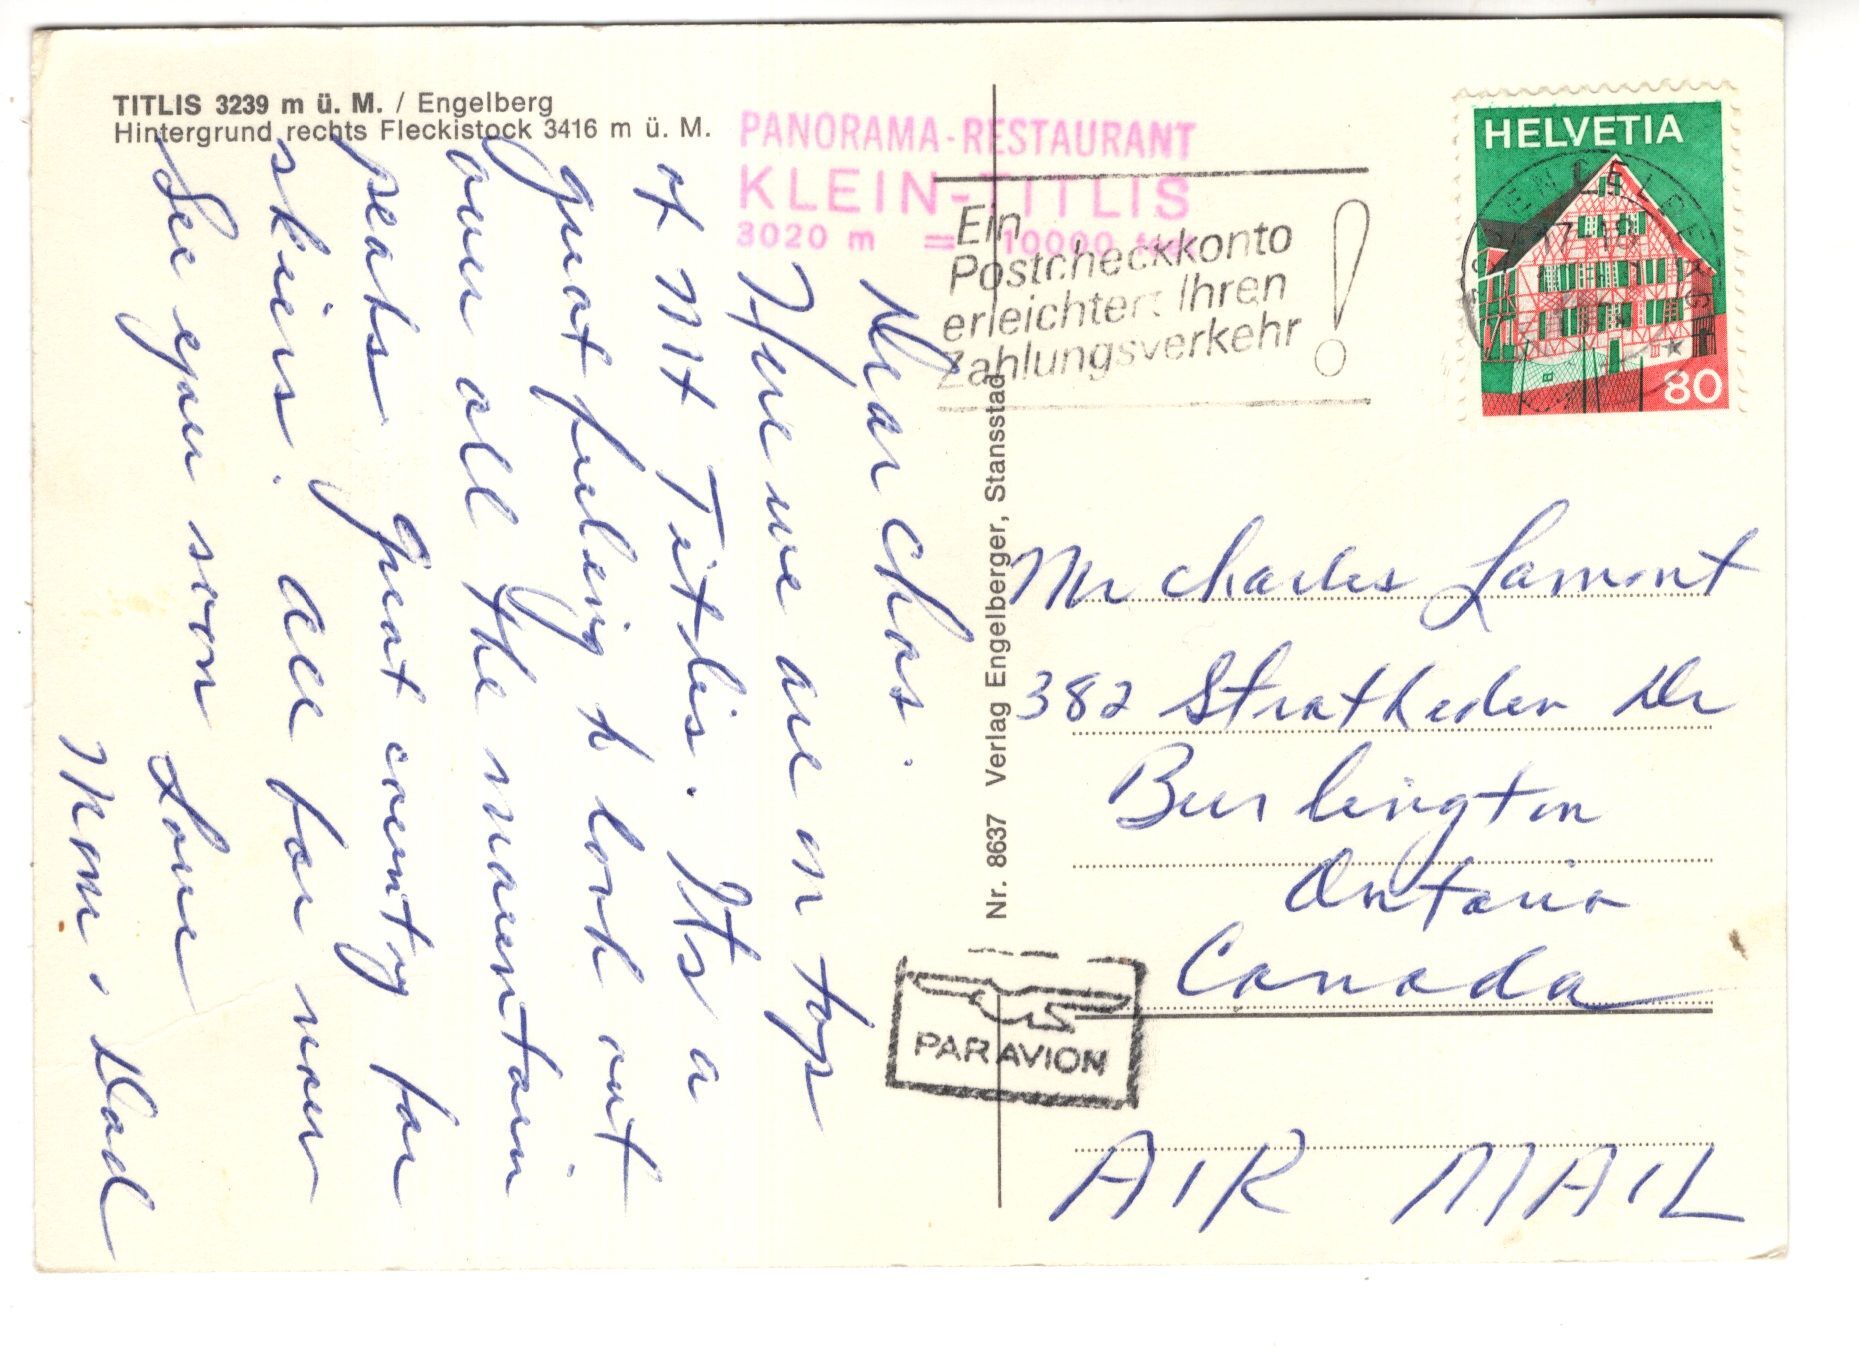 TITLIS 3239 m ü. M. / Engelberg
Hintergrund rechts Fleckistock 3416 m ü. M.
PANORAMA-RESTAURANT
KLEIN-TITLIS
3020 m = 10000
Ein
Postcheckkonto
erleichtert Ihren
Zahlungsverkehr !
HELVETIA
80
Dear Chas.
Here we are on top
of Mt Titlis. Its a
great feeling to look out
over all the mountain
peaks. Great country for
skiers. All for now
See you soon Love
Mom & Dad
Nr. 8637 Verlag Engelberger, Stansstad
Mr Charles Lamont
382 Stratheden Dr
Burlington
Ontario
Canada
PAR AVION
AIR MAIL